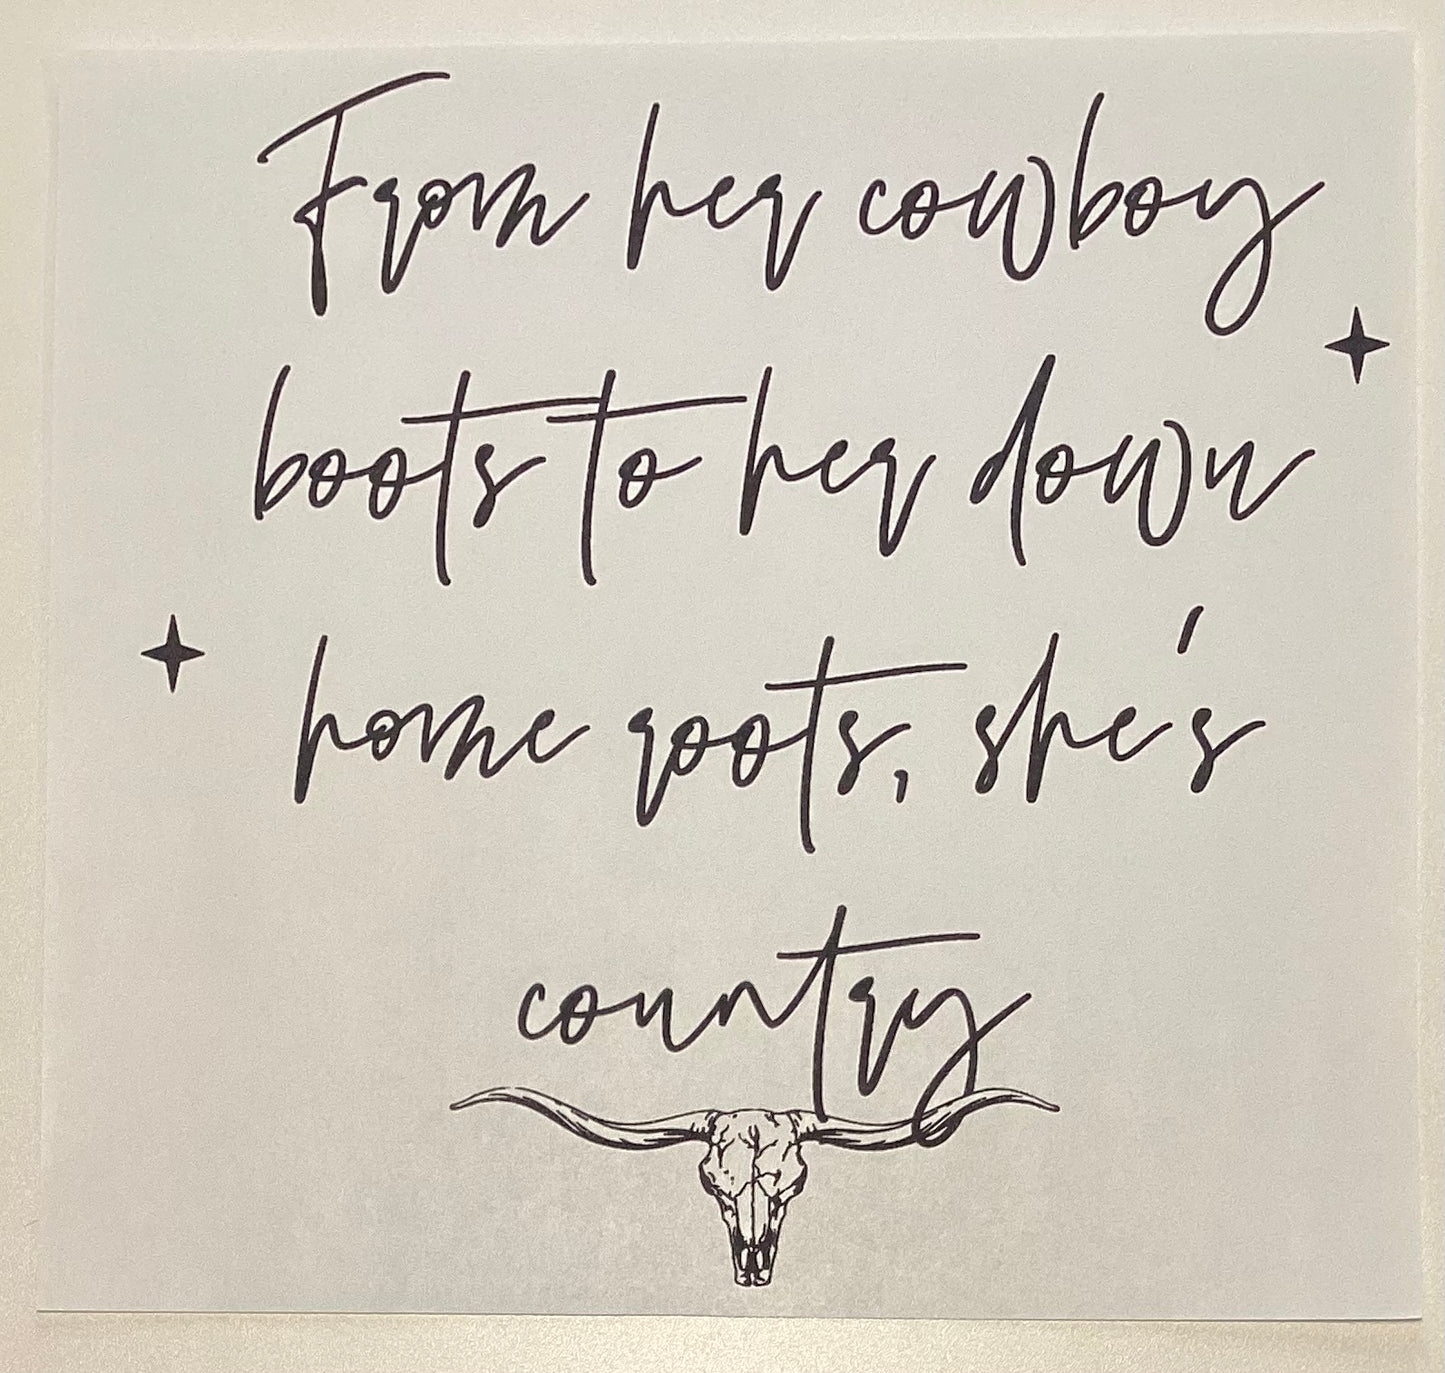 From her cowboy
boots to her down
home roots, she's
country